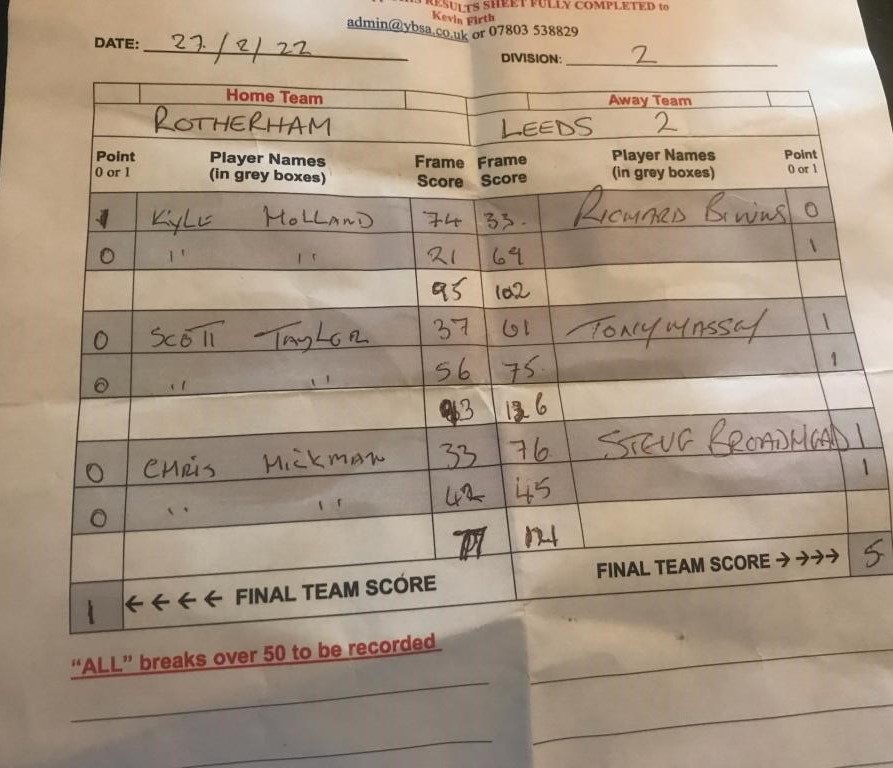 RESULTS SHEET FULLY COMPLETED to
Kevin Firth
admin@ybsa.co.uk or 07803 538829
DATE: 27/2/22 DIVISION: 2
Home Team Away Team
ROTHERHAM LEEDS 2
Point 0 or 1 Player Names (in grey boxes) Frame Score Frame Score Player Names (in grey boxes) Point 0 or 1
1 KYLE HOLLAND 74 33. RICHARD 0
0 " " 21 69 1
95 102
0 SCOTT TAYLOR 37 61 TONY MASSEY 1
0 " " 56 75. 1
93 136
0 CHRIS HICKMAN 33 76 STEVE BROADHEAD 1
0 " " 42 45 1
121
1 ←←←← FINAL TEAM SCORE FINAL TEAM SCORE →→→→ 5
“ALL” breaks over 50 to be recorded